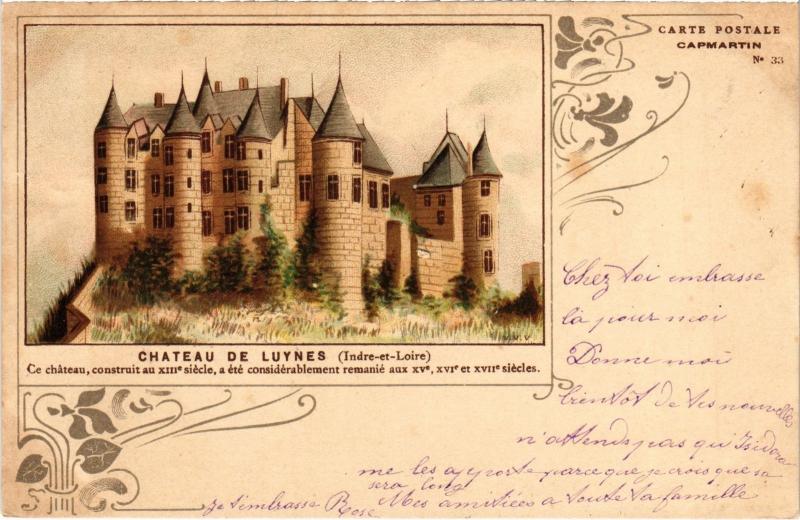 CARTE POSTALE
CAPMARTIN
No 33
CHATEAU DE LUYNES (Indre-et-Loire)
Ce château, construit au XIIIe siècle, a été considérablement remanié aux XVe, XVIe et XVIIe siècles.
Chez toi embrasse
la pour moi
Donne moi
bientôt de tes nouvelles
n'attends pas qu'Isidore
me les apporte parce que je crois que sa
sera long
je t'embrasse Rose Mes amitiées a toute ta famille